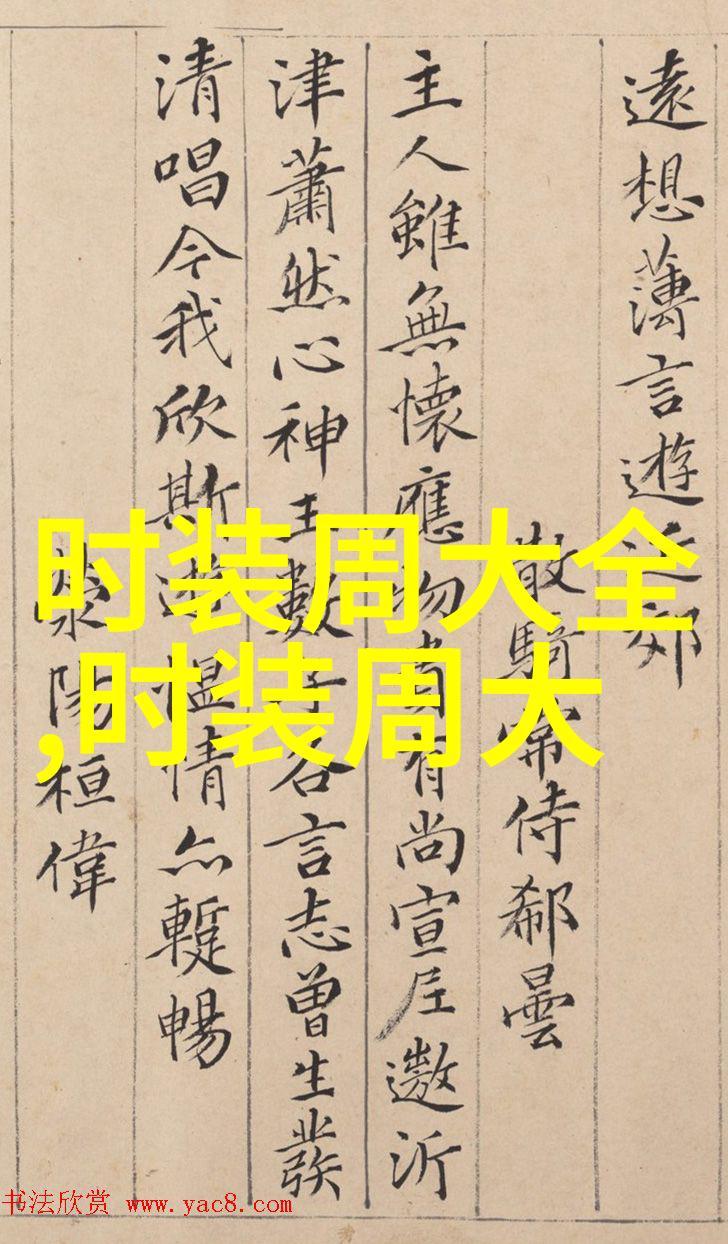 遠想薄言遊近郊
散騎常侍郗曇
主人雖無懷應物貴有尚宣尼遨沂
津蕭然心神王數子各言志曾生發
清唱今我欣斯遊慍情亦暫暢
滎陽桓偉
时装周大全
,时装周大
书法欣赏 www.yac8.com